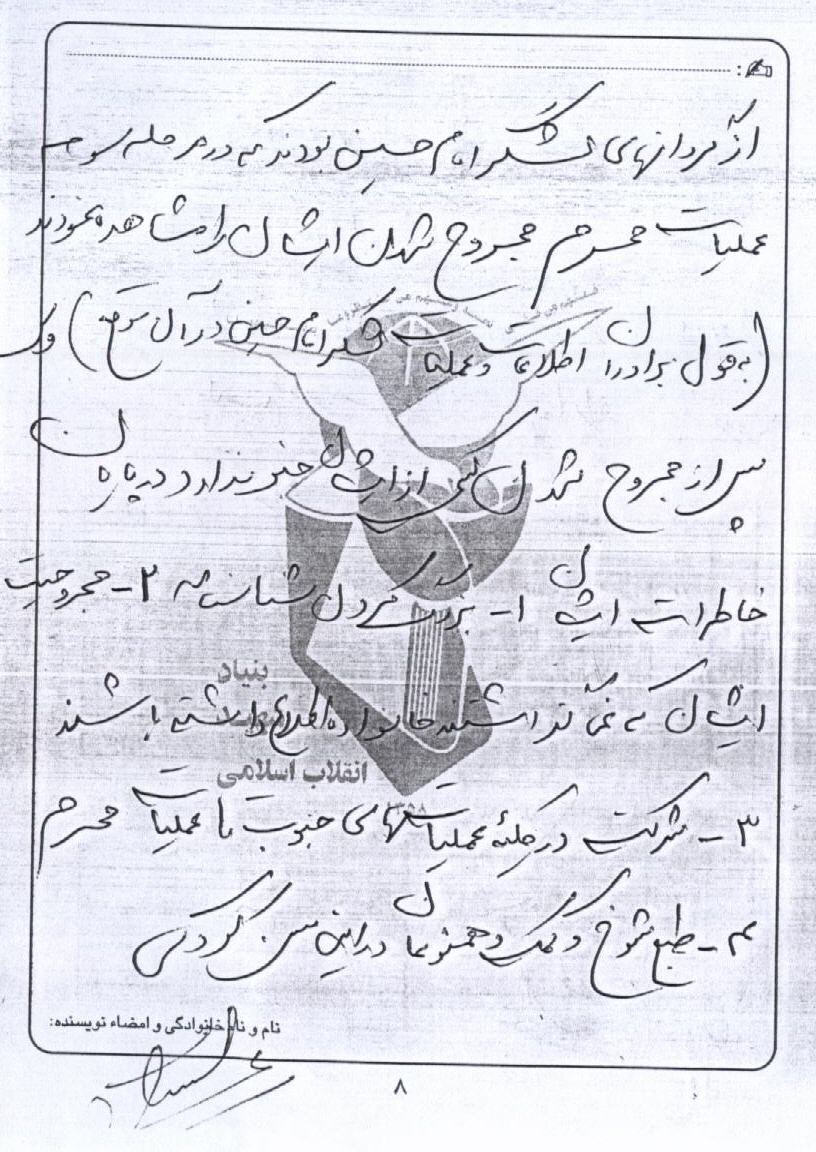 از گردانهای لشکر امام حسین بودند که در مرحله سوم
عملیات محرم مجروح شدن ایشان را مشاهده نمودند
(به قول برادران اطلاعات و عملیات لشکر امام حسین در آن موقع) ولی
پس از مجروح شدن کسی از ایشان خبر ندارد و درباره
خاطرات ایشان ۱- بزرگ کردن شناسنامه ۲- مجروحیت
ایشان که نمی گذاشتند خانواده اطلاع داشته باشند
۳- شرکت در کلیه عملیات‌های جنوب تا عملیات محرم
۴- طبع شوخ و کمک به همنوعان در این سن کودکی
بنیاد
انقلاب اسلامی
نام و نام خانوادگی و امضاء نویسنده:
۸